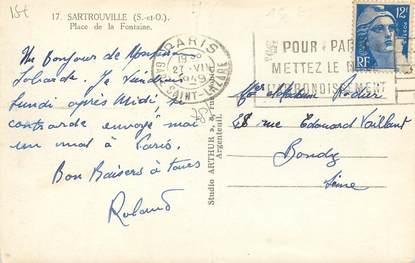 15t
17. SARTROUVILLE (S.-et-O.)
Place de la Fontaine.
Un Bonjour de
Je viendrai
Lundi après Midi si
contrordre envoyé moi
un mot à Paris.
Bon Baisers à tous
Roland
Studio ARTHUR
Argenteuil.
PARIS
18
27 -VII
1949
GARE SAINT-LAZARE
POUR PARIS
METTEZ LE
ARRONDISSEMENT
12F
RF
Mr et Madame Rodier
28 rue Edouard Vaillant
Bondy
Seine